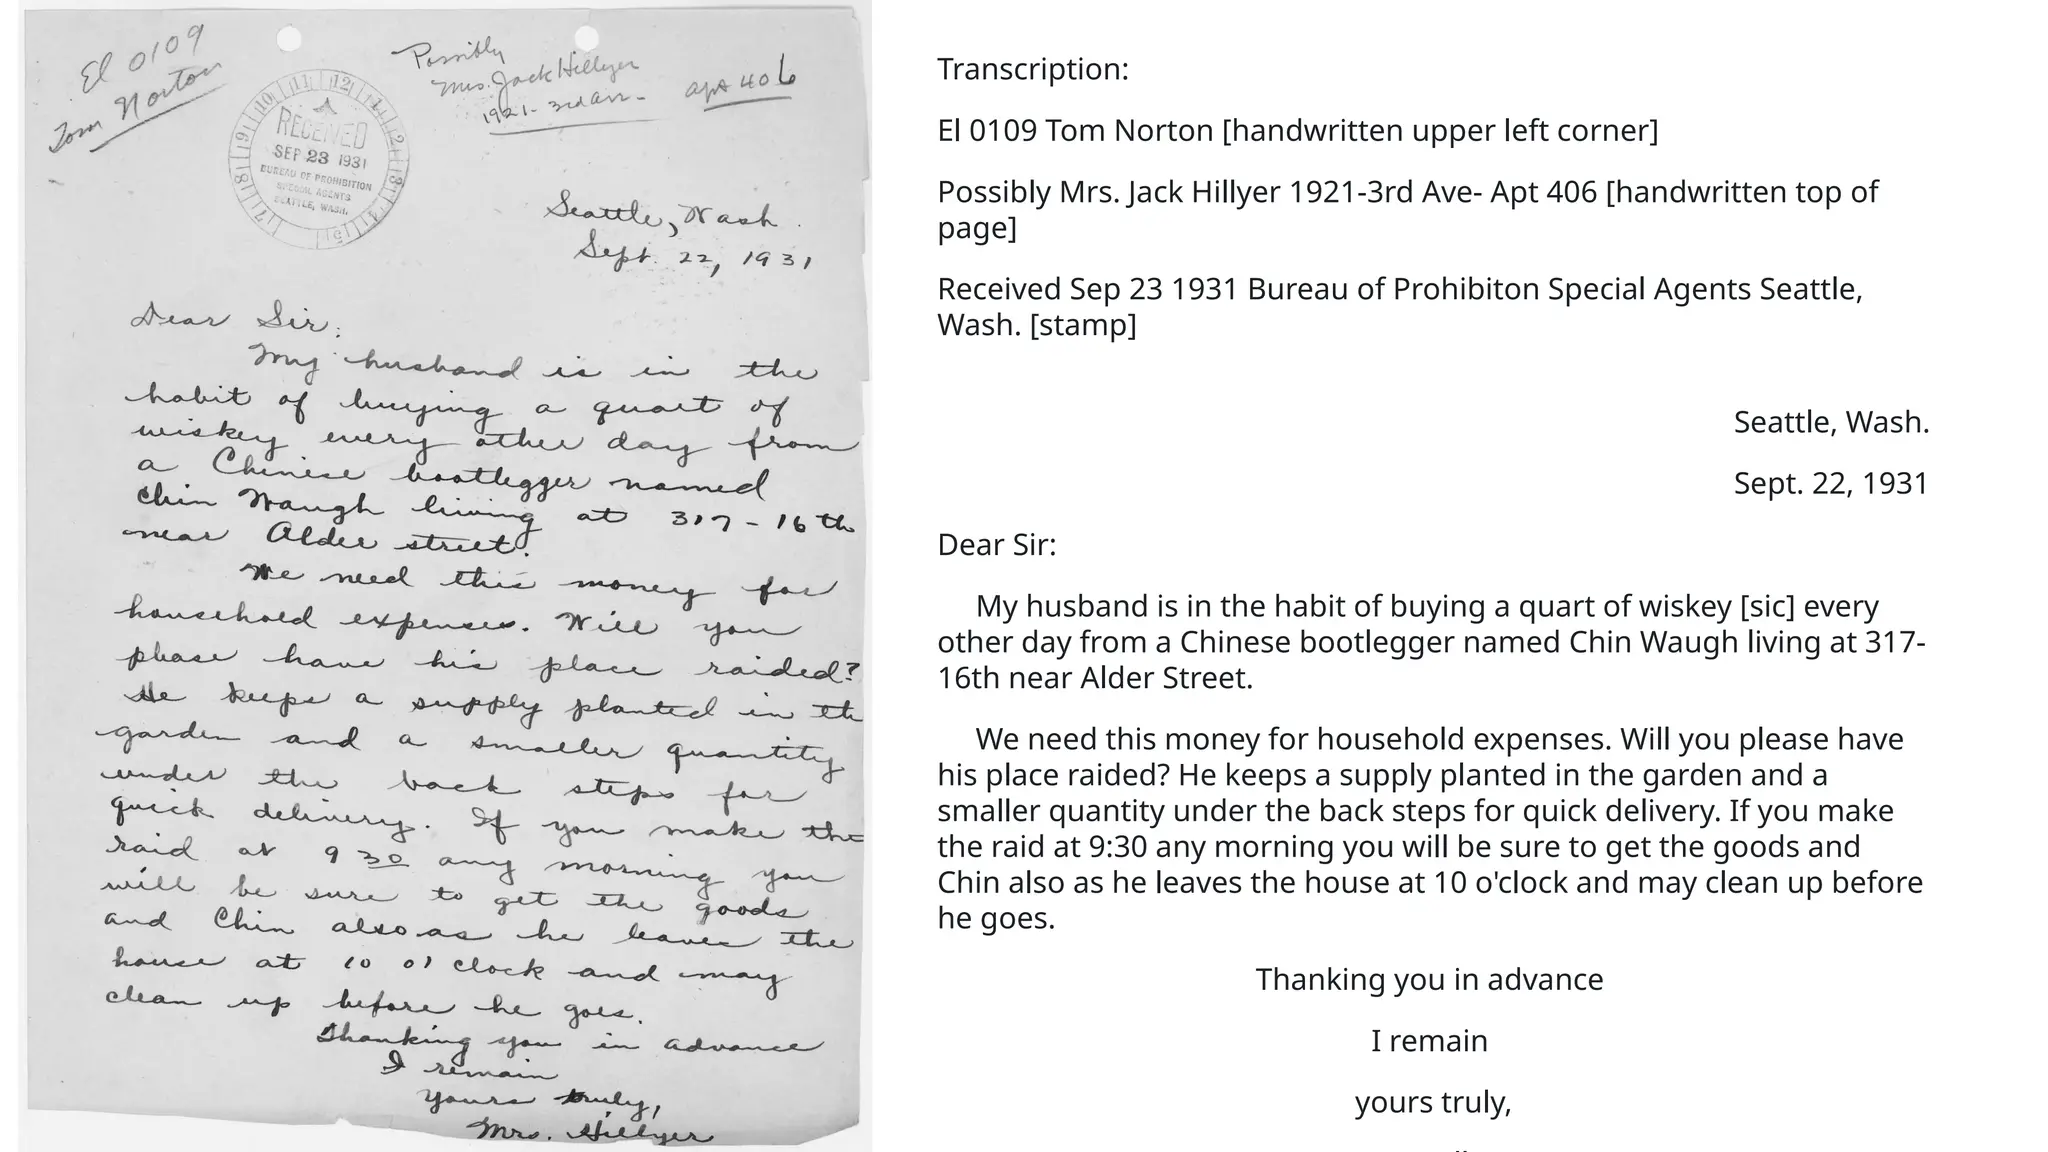 El 0109
Tom Norton
Possibly
Mrs. Jack Hillyer
1921- 3rd Ave-
Apt 406
11 12 1 2 3 4 5 7 8 9 10
RECEIVED
SEP 23 1931
BUREAU OF PROHIBITION
SPECIAL AGENTS
SEATTLE, WASH.
Seattle, Wash.
Sept. 22, 1931
Dear Sir:
My husband is in the
habit of buying a quart of
wiskey every other day from
a Chinese bootlegger named
Chin Waugh living at 317-16th
near Alder street.
We need this money for
household expenses. Will you
please have his place raided?
He keeps a supply planted in the
garden and a smaller quantity
under the back steps for
quick delivery. If you make the
raid at 9 30 any morning you
will be sure to get the goods
and Chin also as he leaves the
house at 10 o'clock and may
clean up before he goes.
Thanking you in advance
I remain
yours truly,
Mrs. Hillyer
Transcription:
El 0109 Tom Norton [handwritten upper left corner]
Possibly Mrs. Jack Hillyer 1921-3rd Ave- Apt 406 [handwritten top of
page]
Received Sep 23 1931 Bureau of Prohibiton Special Agents Seattle,
Wash. [stamp]
Seattle, Wash.
Sept. 22, 1931
Dear Sir:
My husband is in the habit of buying a quart of wiskey [sic] every
other day from a Chinese bootlegger named Chin Waugh living at 317-
16th near Alder Street.
We need this money for household expenses. Will you please have
his place raided? He keeps a supply planted in the garden and a
smaller quantity under the back steps for quick delivery. If you make
the raid at 9:30 any morning you will be sure to get the goods and
Chin also as he leaves the house at 10 o'clock and may clean up before
he goes.
Thanking you in advance
I remain
yours truly,